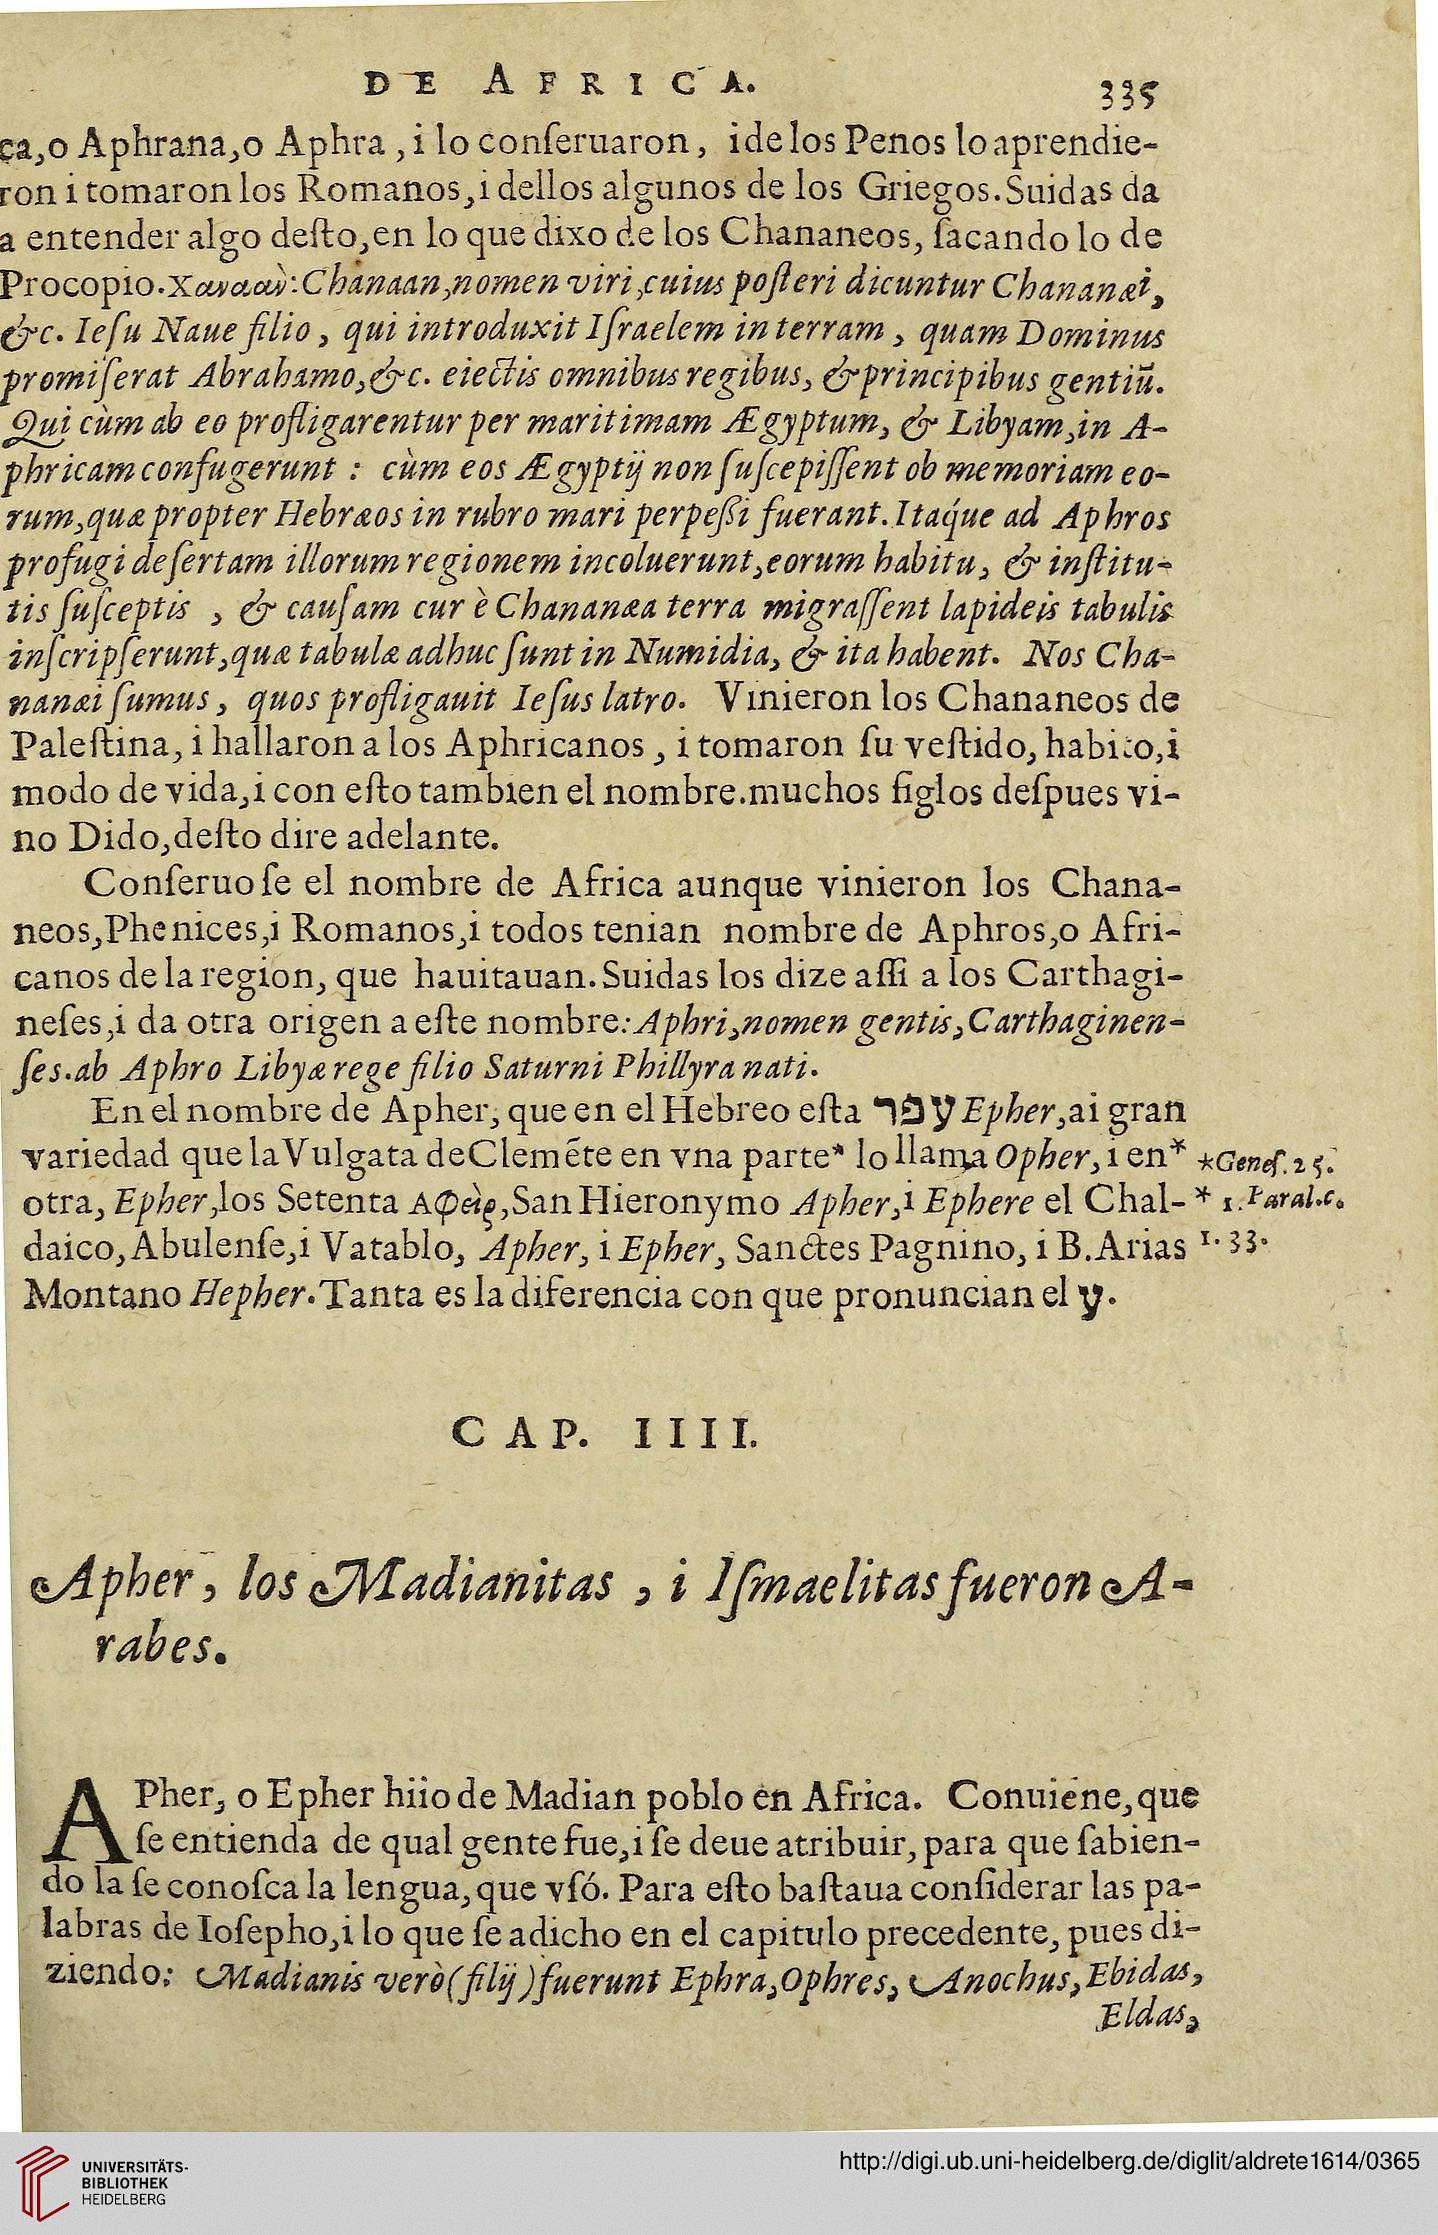 DE AFRICA. 335
ca,o Aphrana,o Aphra , i lo conſeruaron, i de los Penos lo aprendie-
ron i tomaron los Romanos,i dellos algunos de los Griegos.Suidas da
a entender algo deſto,en lo que dixo de los Chananeos, ſacando lo de
Procopio.Χαναάν:Chanaan,nomen viri,cuius poſteri dicuntur Chananæi,
&c. Ieſu Naue filio , qui introduxit Iſraelem in terram , quam Dominus
promiſerat Abrahamo,&c. eiectis omnibus regibus, & principibus gentiū.
Qui cùm ab eo profligarentur per maritimam Ægyptum, & Libyam,in A-
phricam confugerunt : cùm eos Ægyptij non ſuſcepiſſent ob memoriam eo-
rum,quæ propter Hebræos in rubro mari perpeßi fuerant.Itaque ad Aphros
profugi deſertam illorum regionem incoluerunt,eorum habitu, & inſtitu-
tis ſuſceptis , & cauſam cur è Chananæa terra migraſſent lapideis tabulis
inſcripſerunt,quæ tabulæ adhuc ſunt in Numidia, & ita habent. Nos Cha-
nanæi ſumus , quos profligauit Ieſus latro. Vinieron los Chananeos de
Paleſtina, i hallaron a los Aphricanos , i tomaron ſu veſtido, habito,i
modo de vida,i con eſto tambien el nombre.muchos ſiglos deſpues vi-
no Dido,deſto dire adelante.
Conſeruo ſe el nombre de Africa aunque vinieron los Chana-
neos,Phenices,i Romanos,i todos tenian nombre de Aphros,o Afri-
canos de la region, que hauitauan.Suidas los dize aſſi a los Carthagi-
neſes,i da otra origen a eſte nombre:Aphri,nomen gentis,Carthaginen-
ſes.ab Aphro Libyæ rege filio Saturni Phillyra nati.
En el nombre de Apher, que en el Hebreo eſta עפר Epher,ai gran
variedad que la Vulgata de Clemēte en vna parte* lo llama Opher, i en* *Geneſ. 25.
otra, Epher,los Setenta Αφεὶρ,San Hieronymo Apher,i Ephere el Chal- * 1. Paral.c.
daico,Abulenſe,i Vatablo, Apher, i Epher, Sanctes Pagnino, i B.Arias 1. 33.
Montano Hepher.Tanta es la diferencia con que pronuncian el ע.
CAP. IIII.
Apher, los Madianitas , i Iſmaelitas fueron A-
rabes.
APher, o Epher hiio de Madian poblo en Africa. Conuiene,que
ſe entienda de qual gente fue,i ſe deue atribuir, para que ſabien-
do la ſe conoſca la lengua,que vſó. Para eſto baſtaua conſiderar las pa-
labras de Ioſepho,i lo que ſe a dicho en el capitulo precedente, pues di-
ziendo: Madianis verò (filij) fuerunt Ephra,Ophres, Anochus,Ebidas,
Eldas,
UNIVERSITÄTS-
BIBLIOTHEK
HEIDELBERG
http://digi.ub.uni-heidelberg.de/diglit/aldrete1614/0365